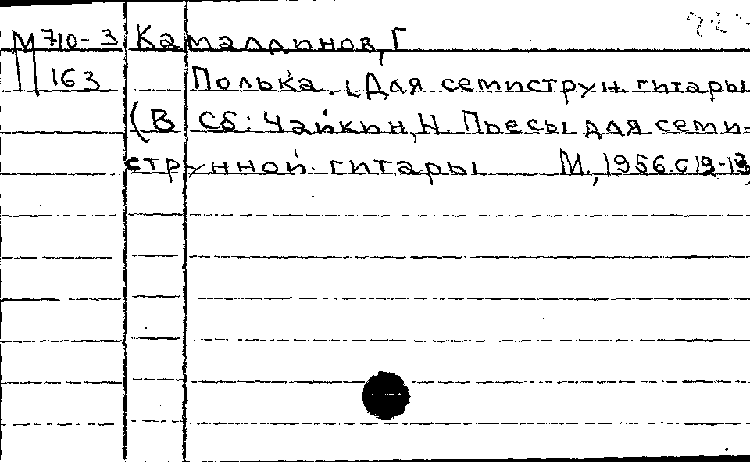 М710-3 Камалдинов, Г
163 Полька. (Для семиструн. гитары
(В сб: Чайкин, Н. Пьесы для семи-
струнной гитары М., 1956. с